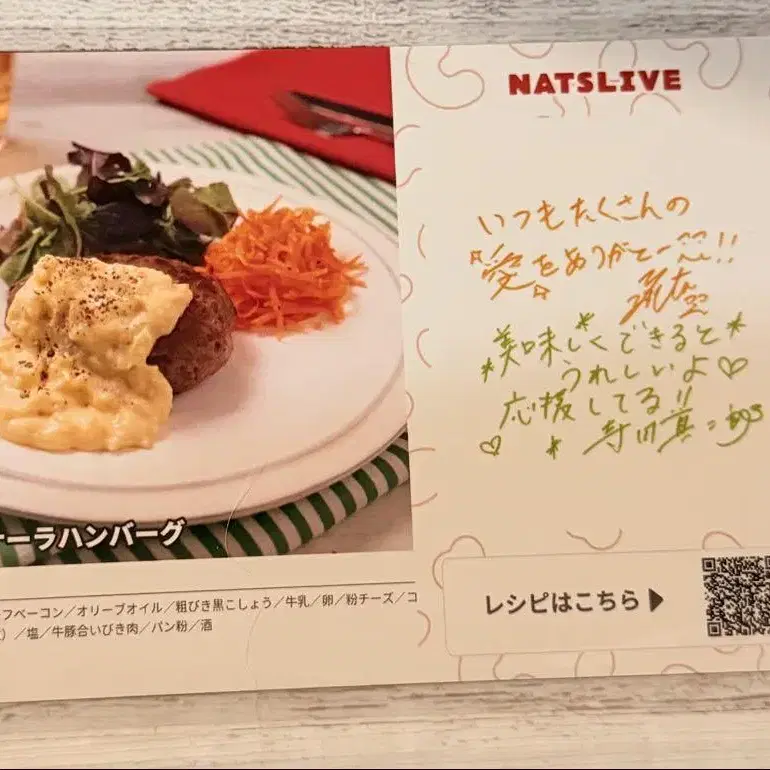 NATSLIVE
いつもたくさんの
愛をありがとー!!
美味しくできると
うれしいよ♡
応援してる!!
ーラハンバーグ
フベーコン／オリーブオイル／粗びき黒こしょう／牛乳／卵／粉チーズ／コ
）／塩／牛豚合いびき肉／パン粉／酒
レシピはこちら▶